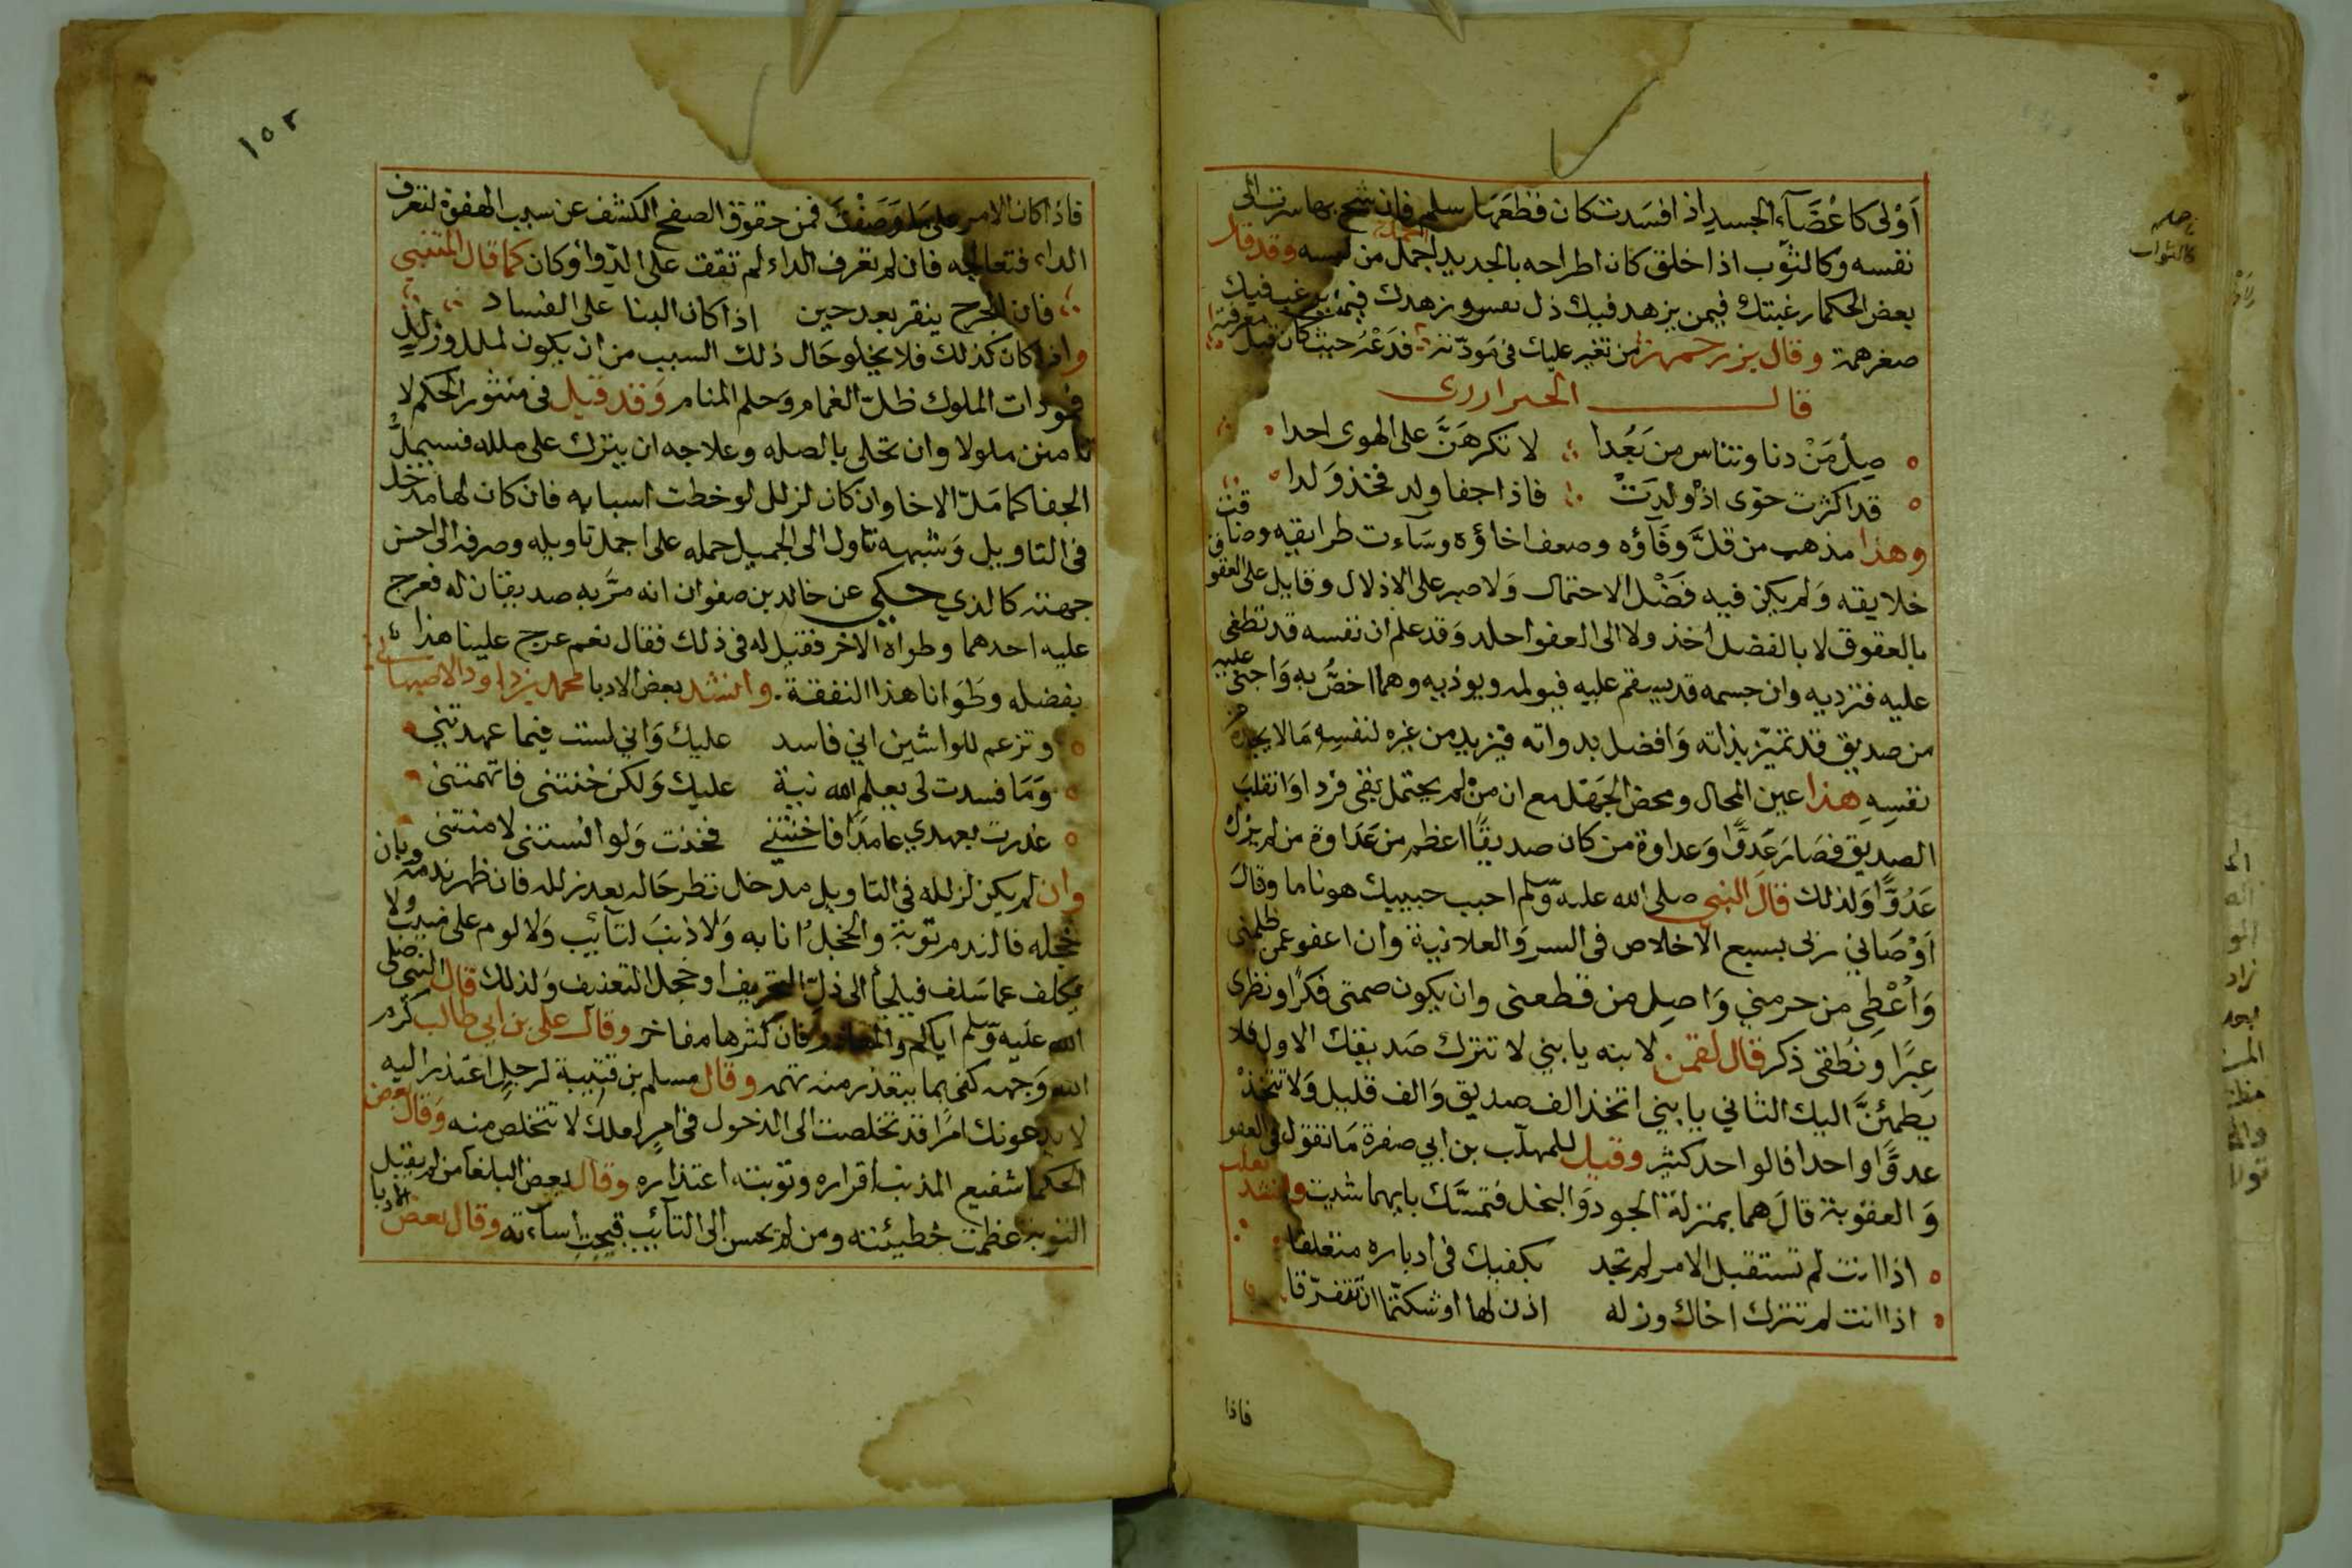 أَوْلى كاعْضَآء الجسد اذا فسدت كان قطعها سلم فان شح بها سرت الى
نفسه وكالثوب اذا خلق كان اطراحه بالجديد اجمل من لبسه وقد قال
بعض الحكما رغبتك فيمن يزهد فيك ذل نفس وزهدك فيمن يرغب فيك
صغر همة وقال بزرجمهر من تغير عليك في مودّته فدَعْهُ حيث كان قبل معرفته
قال الخبزارزي
صِلْ مَنْ دنا وتناس من بَعُدا لا تكرهَنَّ على الهوى احدا
قد اكثرت حوّى اذْ ولدتْ فاذا جفا ولد فخذ وَلدا
وهذا مذهب من قلَّ وفَآؤه وضعف اخاؤه وسَآءت طرايقه وضاقت
خلايقه وَلم يكن فيه فَضْل الاحتمال وَلا صبر على الاذلال وقابل على الهفو
بالعقوق لا بالفضل اخذ ولا الى العفو اخلد وَقد علم ان نفسه قد تطغى
عليه فترديه وان جسمه قد يسقم عليه فيولمه ويوذيه وهما اخصُّ به وَاحنى عليه
من صديق قد تميّز بذاته وَافضل بدواته فيريد من غيره لنفسِه مَا لا يجده من
نفسِهِ هذا عين المحال ومحض الجَهْل مع ان منْ لم يحتمل بقى فردا وَانقلبَ
الصديق فصَارَ عَدوًّا وَعداوة من كان صديقًا اعظم من عَدَاوة من لم يزل
عَدُوًّا وَلذلك قالَ النبي صلى الله عليه وسلم احبب حبيبك هونا ما وقالَ
اَوْصَاني ربى بسبع الاخلاص فى السر وَالعلانية وان اعفو عمن ظلمنى
وَأُعْطِى من حرمني وَاصِل من قطعنى وان يكون صمتى فكرًا ونظرى
عِبَرًا ونُطْقى ذكر قال لقمن لابنه يا بني لا تترك صَديقك الاول فلا
يَطمئنَّ اليك الثاني يا بني اتخذ الف صديق وَالف قليل وَلا تتخذْ
عدوًّا واحدا فالواحد كثير وقيل للمهلّب بن ابي صفرة مَا تقول فى العفو
وَالعقوبة قالَ هما بمنزلة الجود وَالبخل فتمسَّك بايهما شيت وانشد ثعلب
اذا انت لم تستقبل الامر لم تجد بكفيك فى ادباره متعلقا
اذا انت لم تترك اخاك وزله اذ زلها اوشكتما ان تتفرّقا
فاذا
١٥٢
فاذا كان الامر على ما وَصَفْتُ فمن حقوق الصفح الكشف عن سبب الهفوة لتعرف
الداء فتعالجه فان لم تعرف الداء لم تقف على الدّوآ وكان كما قال المتنبي
فان الجرح ينقر بعد حين اذا كان البنا على الفساد
واذا كان كذلك فلا يخلو حَال ذلك السبب من ان يكون لملل او زللٍ
فمودات الملوك ظلّ الغمام وَحلم المنام وَقد قيل فى منثور الحكم لا
تامنن ملولا وان تحلى بالصله وعلاجه ان يترك على ملله فسيملُّ
الجفا كما مَلّ الاخا وان كان لزلل لوحظت اسبابه فان كان لها مدخل
فى التاويل وَشبهه تاول الى الجميل حمله على اجمل تاويله وصرفه الى احسن
جهته كالذي حكى عن خالد بن صفوان انه مرَّ به صديقان له فعرج
عليه احدهما وطواه الاخر فقيل له فى ذلك فقال نعم عرج علينا هذا
بفضله وطَوَانا هذا لثقته . وانشد بعض الادبا لمحمد بن داود الاصبهاني
وتزعم للواشين اني فاسد عليك وَاني لست فيما عهدتني
وَمَا فسدت لى يعلم الله نية عليك وَلكن خنتنى فاتهمتنى
غدرت بعهدي عامدًا فاخفتني فخفت وَلو انستنى لامنتنى
وان لم يكن لزلله فى التاويل مدخل نظر حَاله بعد زلله فان ظهر ندمه وبان
خجله فالندم توبة والخجل انابه وَلا ذنبَ لتآئب وَلا لوم على منيب ولا
يكلف عما سَلف فيلجأ الى ذلّ التحريف او خجل التعنيف وَلذلك قال النبي صلى
الله عليه وسلم اياكم والمعاذر فان اكثرها مفاخر وقال على بن ابي طالب كرم
الله وَجهه كفى بما يعتذر منه تهمه وقال مسلم بن قتيبة لرجلٍ اعتذر اليه
لا يدعونك امرًا قد تخلصت الى الدخول فى امرٍ لعلك لا تتخلص منه وَقال بعض
الحكما شفيع المذنب اقراره وتوبته اعتذاره وقال بعض البلغا من لم يقبل
التوبة عظمت خطيئته ومن لم يحسن الى التآئب قبحت اسآءته وقال بعض الادبا